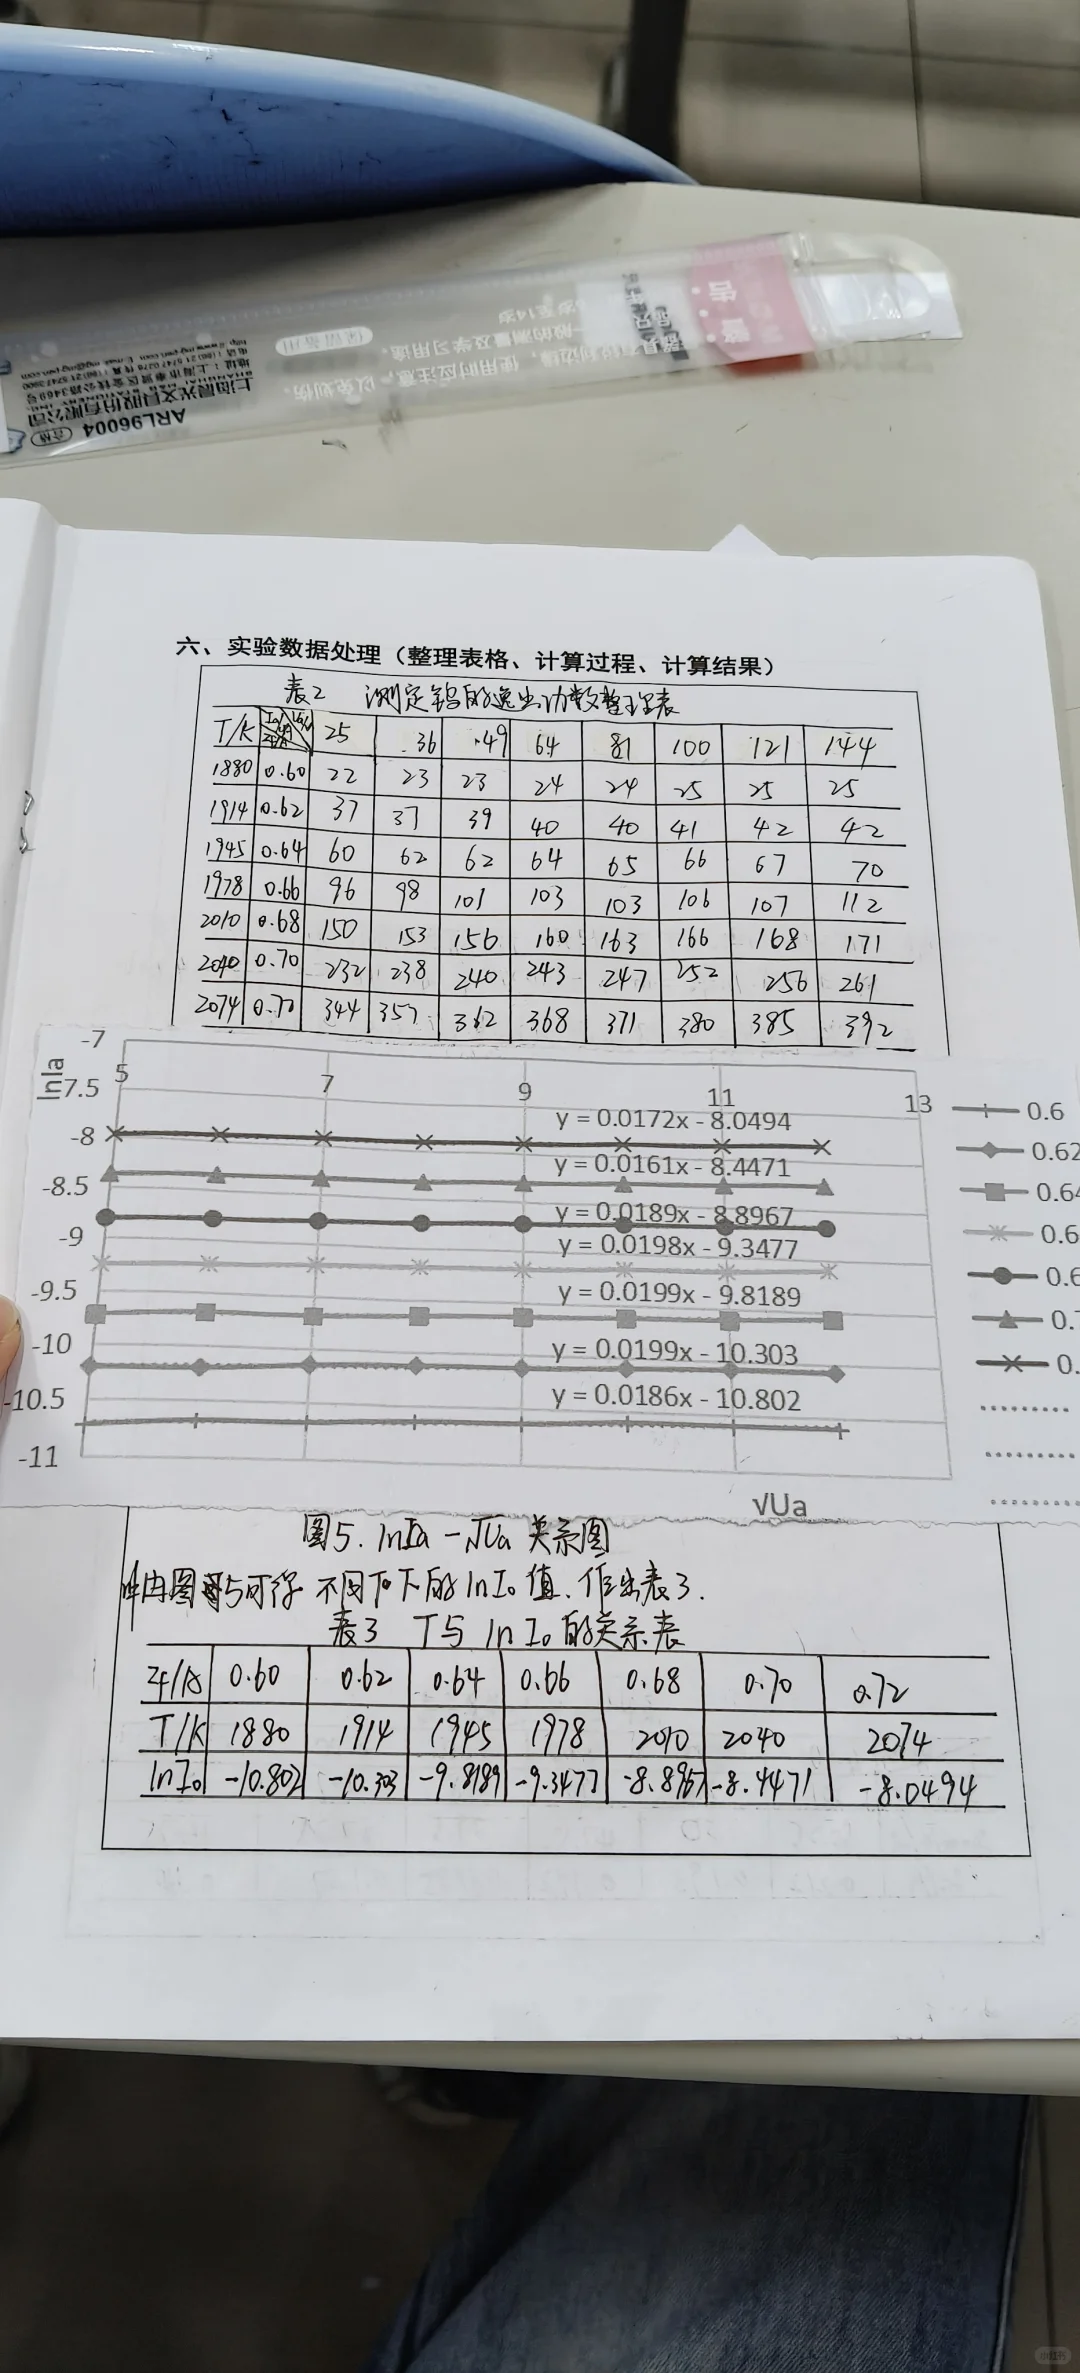 警告
ARL96004
合格
上海晨光文具股份有限公司
保留备用
六、实验数据处理（整理表格、计算过程、计算结果）
表2 测定钨的逸出功数据整理表
T/K 25 36 49 64 81 100 121 144
1880 0.60 22 23 23 24 24 25 25 25
1914 0.62 37 37 39 40 40 41 42 42
1945 0.64 60 62 62 64 65 66 67 70
1978 0.66 96 98 101 103 103 106 107 112
2010 0.68 150 153 156 160 163 166 168 171
2040 0.70 232 238 240 243 247 252 256 261
2074 0.72 344 357 362 368 371 380 385 392
lnIa
-7
5 7 9 11 13
-7.5
-8
-8.5
-9
-9.5
-10
-10.5
-11
y = 0.0172x - 8.0494
y = 0.0161x - 8.4471
y = 0.0189x - 8.8967
y = 0.0198x - 9.3477
y = 0.0199x - 9.8189
y = 0.0199x - 10.303
y = 0.0186x - 10.802
0.6
0.62
0.64
0.6
0.6
0.7
0.
√Ua
图5. lnIa - √Ua 关系图
由图5可得 不同T下的lnI₀值.作出表3.
表3 T与 lnI₀的关系表
If/A 0.60 0.62 0.64 0.66 0.68 0.70 0.72
T/K 1880 1914 1945 1978 2010 2040 2074
lnI₀ -10.802 -10.303 -9.8189 -9.3477 -8.8967 -8.4471 -8.0494
小红书